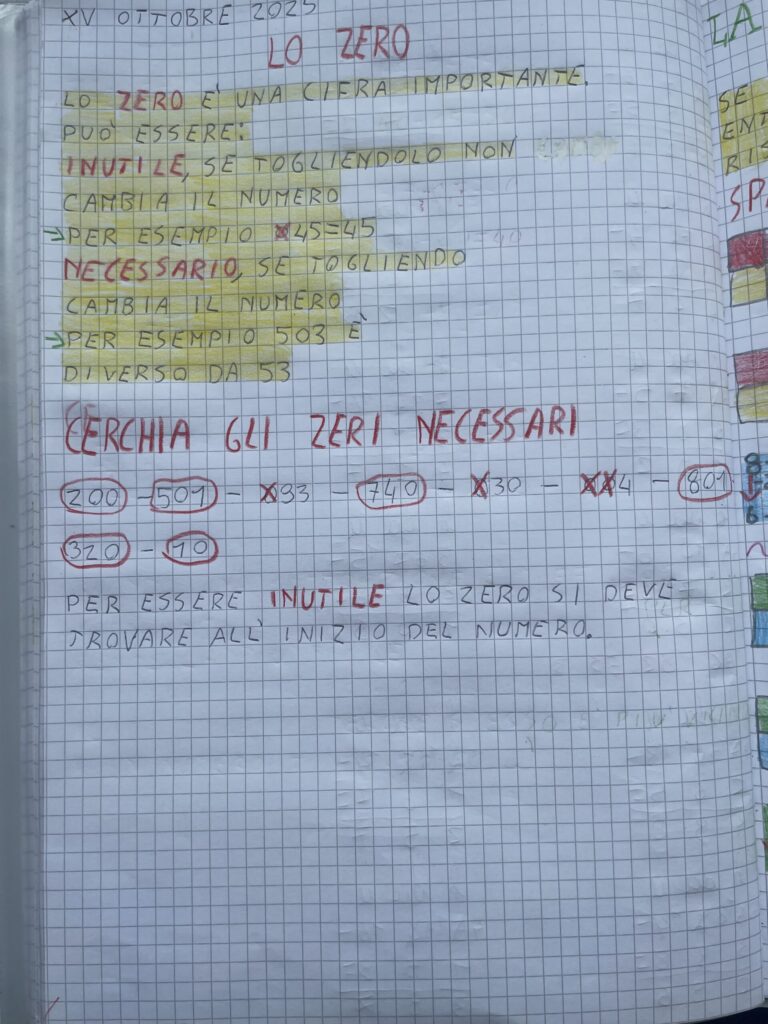 XV OTTOBRE 2025
LO ZERO
LO ZERO E' UNA CIFRA IMPORTANTE.
PUO' ESSERE:
INUTILE, SE TOGLIENDOLO NON
CAMBIA IL NUMERO
→PER ESEMPIO 045=45
NECESSARIO, SE TOGLIENDO
CAMBIA IL NUMERO
→PER ESEMPIO 503 È
DIVERSO DA 53
CERCHIA GLI ZERI NECESSARI
200 - 501 - 093 - 740 - 030 - 004 - 801
320 - 10
PER ESSERE INUTILE LO ZERO SI DEVE
TROVARE ALL' INIZIO DEL NUMERO.
LA
SE
ENT
RIS
SPA
8
6